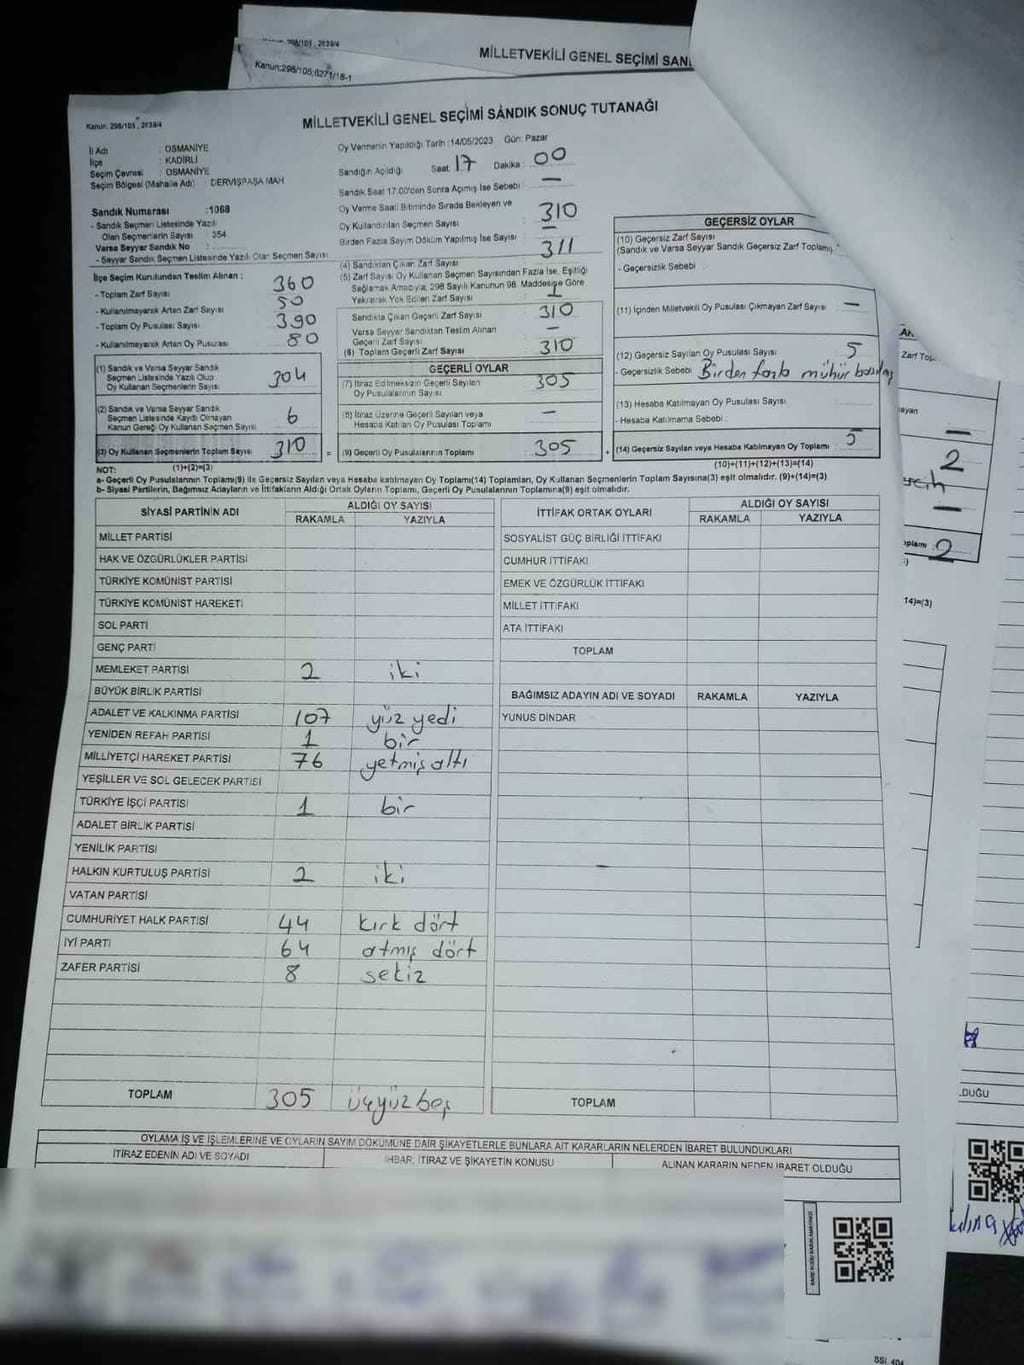 Kanun:298/105;6271/18-1
MİLLETVEKİLİ GENEL SEÇİMİ SAN
Kanun: 298/105, 2839/4
MİLLETVEKİLİ GENEL SEÇİMİ SANDIK SONUÇ TUTANAĞI
İl Adı : OSMANİYE
İlçe : KADİRLİ
Seçim Çevresi : OSMANİYE
Seçim Bölgesi (Mahalle Adı) : DERVİŞPAŞA MAH
Sandık Numarası :1068
- Sandık Seçmen Listesinde Yazılı
Olan Seçmenlerin Sayısı : 354
Varsa Seyyar Sandık No :
- Seyyar Sandık Seçmen Listesinde Yazılı Olan Seçmen Sayısı
İlçe Seçim Kurulundan Teslim Alınan :
- Toplam Zarf Sayısı 360
- Kullanılmayarak Artan Zarf Sayısı 50
- Toplam Oy Pusulası Sayısı 390
- Kullanılmayarak Artan Oy Pusulası 80
(1) Sandık ve Varsa Seyyar Sandık
Seçmen Listesinde Yazılı Olup
Oy Kullanan Seçmenlerin Sayısı 304
(2) Sandık ve Varsa Seyyar Sandık
Seçmen Listesinde Kayıtlı Olmayan
Kanun Gereği Oy Kullanan Seçmen Sayısı 6
(3) Oy Kullanan Seçmenlerin Toplam Sayısı 310
(1)+(2)=(3)
Oy Vermenin Yapıldığı Tarih :14/05/2023 Gün: Pazar
Sandığın Açıldığı Saat: 17 Dakika : 00
Sandık Saat 17:00'den Sonra Açılmış İse Sebebi : —
Oy Verme Saati Bitiminde Sırada Bekleyen ve
Oy Kullandırılan Seçmen Sayısı 310
Birden Fazla Sayım Döküm Yapılmış İse Sayısı : —
(4) Sandıktan Çıkan Zarf Sayısı 311
(5) Zarf Sayısı Oy Kullanan Seçmen Sayısından Fazla İse, Eşitliği
Sağlamak Amacıyla, 298 Sayılı Kanunun 98. Maddesine Göre
Yakılarak Yok Edilen Zarf Sayısı 1
Sandıkta Çıkan Geçerli Zarf Sayısı 310
Varsa Seyyar Sandıktan Teslim Alınan
Geçerli Zarf Sayısı —
(6) Toplam Geçerli Zarf Sayısı 310
GEÇERLİ OYLAR
(7) İtiraz Edilmeksizin Geçerli Sayılan
Oy Pusulalarının Sayısı 305
(8) İtiraz Üzerine Geçerli Sayılan veya
Hesaba Katılan Oy Pusulası Toplamı —
= (9) Geçerli Oy Pusulalarının Toplamı 305
GEÇERSİZ OYLAR
(10) Geçersiz Zarf Sayısı
(Sandık ve Varsa Seyyar Sandık Geçersiz Zarf Toplamı)
- Geçersizlik Sebebi :
(11) İçinden Milletvekili Oy Pusulası Çıkmayan Zarf Sayısı —
(12) Geçersiz Sayılan Oy Pusulası Sayısı 5
- Geçersizlik Sebebi : Birden fazla mühür basılmış
(13) Hesaba Katılmayan Oy Pusulası Sayısı
- Hesaba Katılmama Sebebi :
+ (14) Geçersiz Sayılan veya Hesaba Katılmayan Oy Toplamı : 5
(10)+(11)+(12)+(13)=(14)
NOT:
a- Geçerli Oy Pusulalarının Toplamı(9) ile Geçersiz Sayılan veya Hesaba katılmayan Oy Toplamı(14) Toplamları, Oy Kullanan Seçmenlerin Toplam Sayısına(3) eşit olmalıdır. (9)+(14)=(3)
b- Siyasi Partilerin, Bağımsız Adayların ve İttifakların Aldığı Ortak Oyların Toplamı, Geçerli Oy Pusulalarının Toplamına(9) eşit olmalıdır.
SİYASİ PARTİNİN ADI ALDIĞI OY SAYISI
RAKAMLA YAZIYLA
MİLLET PARTİSİ
HAK VE ÖZGÜRLÜKLER PARTİSİ
TÜRKİYE KOMÜNİST PARTİSİ
TÜRKİYE KOMÜNİST HAREKETİ
SOL PARTİ
GENÇ PARTİ
MEMLEKET PARTİSİ 2 iki
BÜYÜK BİRLİK PARTİSİ
ADALET VE KALKINMA PARTİSİ 107 yüz yedi
YENİDEN REFAH PARTİSİ 1 bir
MİLLİYETÇİ HAREKET PARTİSİ 76 yetmiş altı
YEŞİLLER VE SOL GELECEK PARTİSİ
TÜRKİYE İŞÇİ PARTİSİ 1 bir
ADALET BİRLİK PARTİSİ
YENİLİK PARTİSİ
HALKIN KURTULUŞ PARTİSİ 2 iki
VATAN PARTİSİ
CUMHURİYET HALK PARTİSİ 44 kırk dört
İYİ PARTİ 64 atmış dört
ZAFER PARTİSİ 8 sekiz
TOPLAM 305 üçyüz beş
İTTİFAK ORTAK OYLARI ALDIĞI OY SAYISI
RAKAMLA YAZIYLA
SOSYALİST GÜÇ BİRLİĞİ İTTİFAKI
CUMHUR İTTİFAKI
EMEK VE ÖZGÜRLÜK İTTİFAKI
MİLLET İTTİFAKI
ATA İTTİFAKI
TOPLAM
BAĞIMSIZ ADAYIN ADI VE SOYADI RAKAMLA YAZIYLA
YUNUS DİNDAR
TOPLAM
OYLAMA İŞ VE İŞLEMLERİNE VE OYLARIN SAYIM DÖKÜMÜNE DAİR ŞİKAYETLERLE BUNLARA AİT KARARLARIN NELERDEN İBARET BULUNDUKLARI
İTİRAZ EDENİN ADI VE SOYADI İHBAR, İTİRAZ VE ŞİKAYETİN KONUSU ALINAN KARARIN NEDEN İBARET OLDUĞU
Zarf Top
ayan
—
2
—
oplamı : 2
14)=(3)
LDUĞU